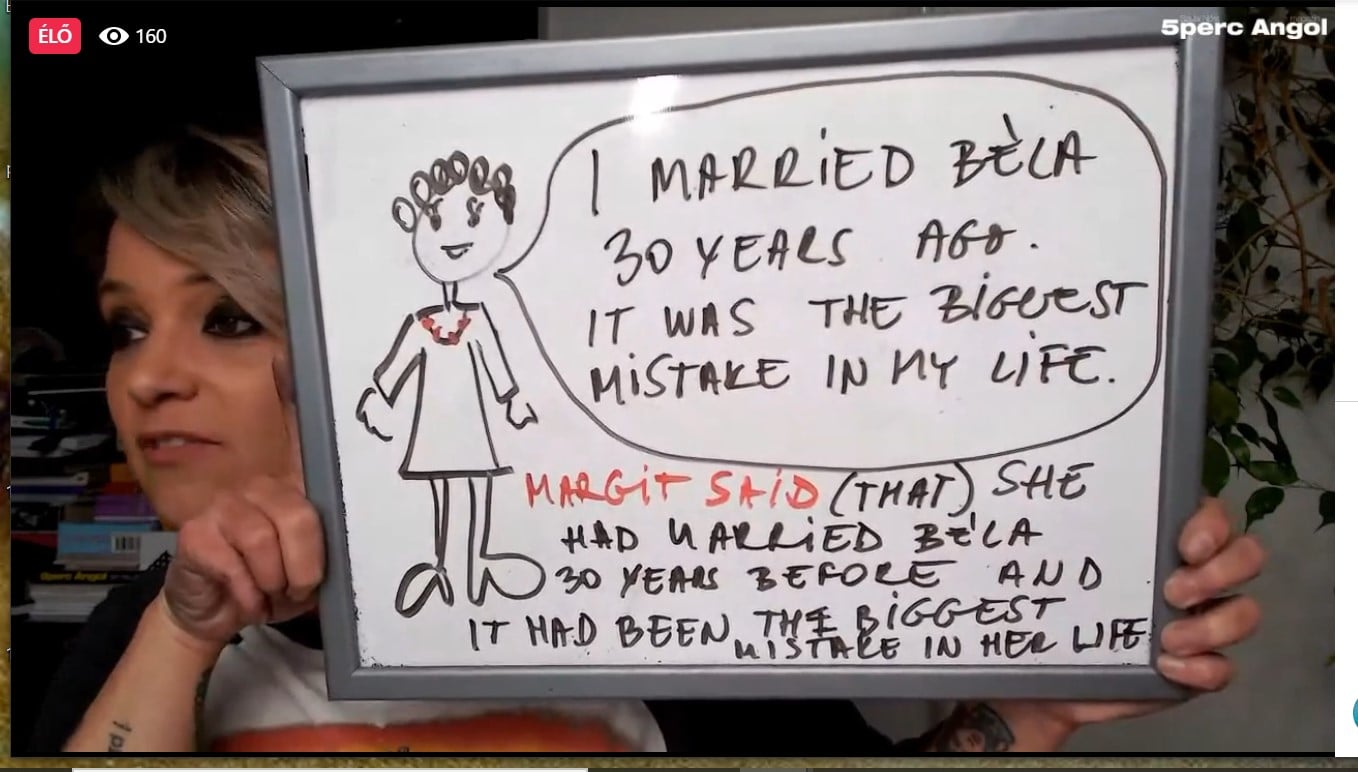 ÉLŐ 160
5perc Angol
I MARRIED BÈLA
30 YEARS AGO.
IT WAS THE BIGGEST
MISTAKE IN MY LIFE.
MARGIT SAID (THAT) SHE
HAD MARRIED BÉLA
30 YEARS BEFORE AND
IT HAD BEEN THE BIGGEST
MISTAKE IN HER LIFE
5perc Angol